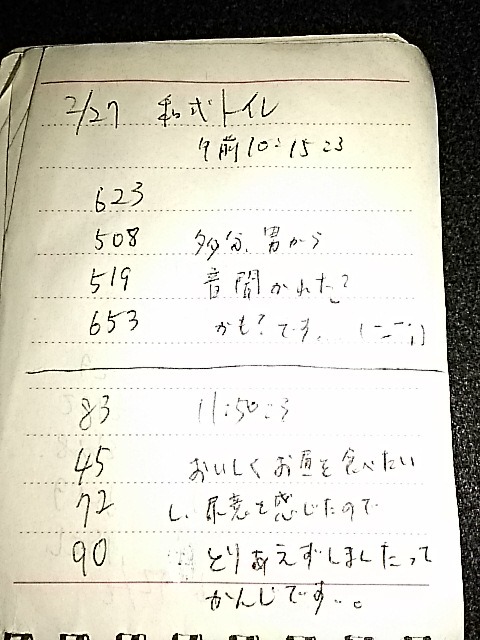 2/27 和式トイレ
午前10:15ころ
623
508 多分、男から
519 音聞かれた?
653 かも?です… (ー ー;)
83 11:50ころ
45 おいしくお昼を食べたい
72 し、尿意を感じたので
90 とりあえずしましたって
かんじです…。